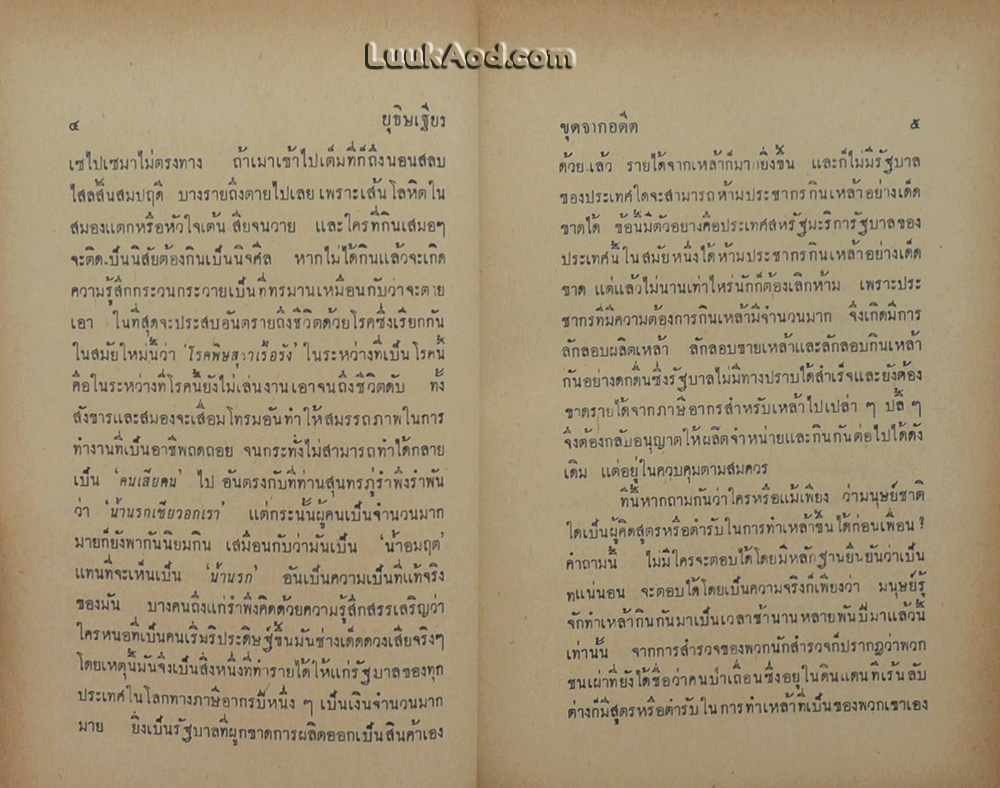 LuukAod.com
๔ ยุธิษเฐียร
เซไปเซมาไม่ตรงทาง ถ้าเมาเข้าไปเต็มที่ก็ถึงนอนสลบ
ไสลสิ้นสมปฤดี บางรายถึงตายไปเลย เพราะเส้นโลหิตใน
สมองแตกหรือหัวใจเต้นเสียจนวาย และใครที่กินเสมอๆ
จะติดเป็นนิสัยต้องกินเป็นนิจศีล หากไม่ได้กินแล้วจะเกิด
ความรู้สึกกระวนกระวายเป็นที่ทรมานเหมือนกับว่าจะตาย
เอา ในที่สุดจะประสบอันตรายถึงชีวิตด้วยโรคซึ่งเรียกกัน
ในสมัยใหม่นี้ว่า ‘โรคพิษสุราเรื้อรัง’ ในระหว่างที่เป็นโรคนี้
คือในระหว่างที่โรคนี้ยังไม่เล่นงานเอาจนถึงชีวิตดับ ทั้ง
สังขารและสมองจะเสื่อมโทรมอันทำให้สมรรถภาพในการ
ทำงานที่เป็นอาชีพถดถอย จนกระทั่งไม่สามารถทำได้กลาย
เป็น ‘คนเสียคน’ ไป อันตรงกับที่ท่านสุนทรภู่รำพึงรำพัน
ว่า ‘น้ำนรกเจียวอกเรา’ แต่กระนั้นผู้คนเป็นจำนวนมาก
มายก็ยังพากันนิยมกิน เสมือนกับว่ามันเป็น ‘น้ำอมฤต’
แทนที่จะเห็นเป็น ‘น้ำนรก’ อันเป็นความเป็นที่แท้จริง
ของมัน บางคนถึงแก่รำพึงคิดด้วยความรู้สึกสรรเสริญว่า
ใครหนอที่เป็นคนเริ่มริประดิษฐ์ขึ้นมันช่างเด็ดดวงเสียจริงๆ
โดยเหตุนี้มันจึงเป็นสิ่งหนึ่งที่ทำรายได้ให้แก่รัฐบาลของทุก
ประเทศในโลกทางภาษีอากรปีหนึ่ง ๆ เป็นเงินจำนวนมาก
มาย ยิ่งเป็นรัฐบาลที่ผูกขาดการผลิตออกเป็นสินค้าเอง
ขุดจากอดีต ๕
ด้วยแล้ว รายได้จากเหล้าก็มากยิ่งขึ้น และก็ไม่มีรัฐบาล
ของประเทศใดจะสามารถห้ามประชากรกินเหล้าอย่างเด็ด
ขาดได้ ข้อนี้มีตัวอย่างคือประเทศสหรัฐมะริการัฐบาลของ
ประเทศนี้ในสมัยหนึ่งได้ห้ามประชากรกินเหล้าอย่างเด็ด
ขาด แต่แล้วไม่นานเท่าไหร่นักก็ต้องเลิกห้าม เพราะประ
ชากรที่มีความต้องการกินเหล้ามีจำนวนมาก จึงเกิดมีการ
ลักลอบผลิตเหล้า ลักลอบขายเหล้าและลักลอบกินเหล้า
กันอย่างดกดื่นซึ่งรัฐบาลไม่มีทางปราบได้สำเร็จและยังต้อง
ขาดรายได้จากภาษีอากรสำหรับเหล้าไปเปล่า ๆ ปลี้ ๆ
จึงต้องกลับอนุญาตให้ผลิตจำหน่ายและกินกันต่อไปได้ดัง
เดิม แต่อยู่ในควบคุมตามสมควร
ทีนี้หากถามกันว่าใครหรือแม้เพียง ว่ามนุษย์ชาติ
ใดเป็นผู้คิดสูตรหรือตำรับในการทำเหล้าขึ้นได้ก่อนเพื่อน ?
คำถามนี้ ไม่มีใครจะตอบได้โดยมีหลักฐานยืนยันว่าเป็น
ที่แน่นอน จะตอบได้โดยเป็นความจริงก็เพียงว่า มนุษย์รู้
จักทำเหล้ากินกันมาเป็นเวลาช้านานหลายพันปีมาแล้วนี้
เท่านั้น จากการสำรวจของพวกนักสำรวจก็ปรากฏว่าพวก
ชนเผ่าที่ยังได้ชื่อว่าคนป่าเถื่อนซึ่งอยู่ในดินแดนที่เร้นลับ
ต่างก็มีสูตรหรือตำรับในการทำเหล้าที่เป็นของพวกเขาเอง